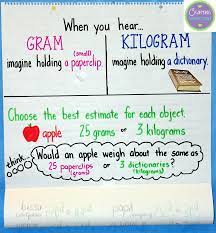 When you hear...
GRAM
KILOGRAM
(small)
imagine holding a paperclip.
imagine holding a dictionary.
Choose the best estimate for each object.
apple 25 grams or 3 kilograms
think
Would an apple weigh about the same as...
25 paperclips or 3 dictionaries?
(grams) (kilograms)